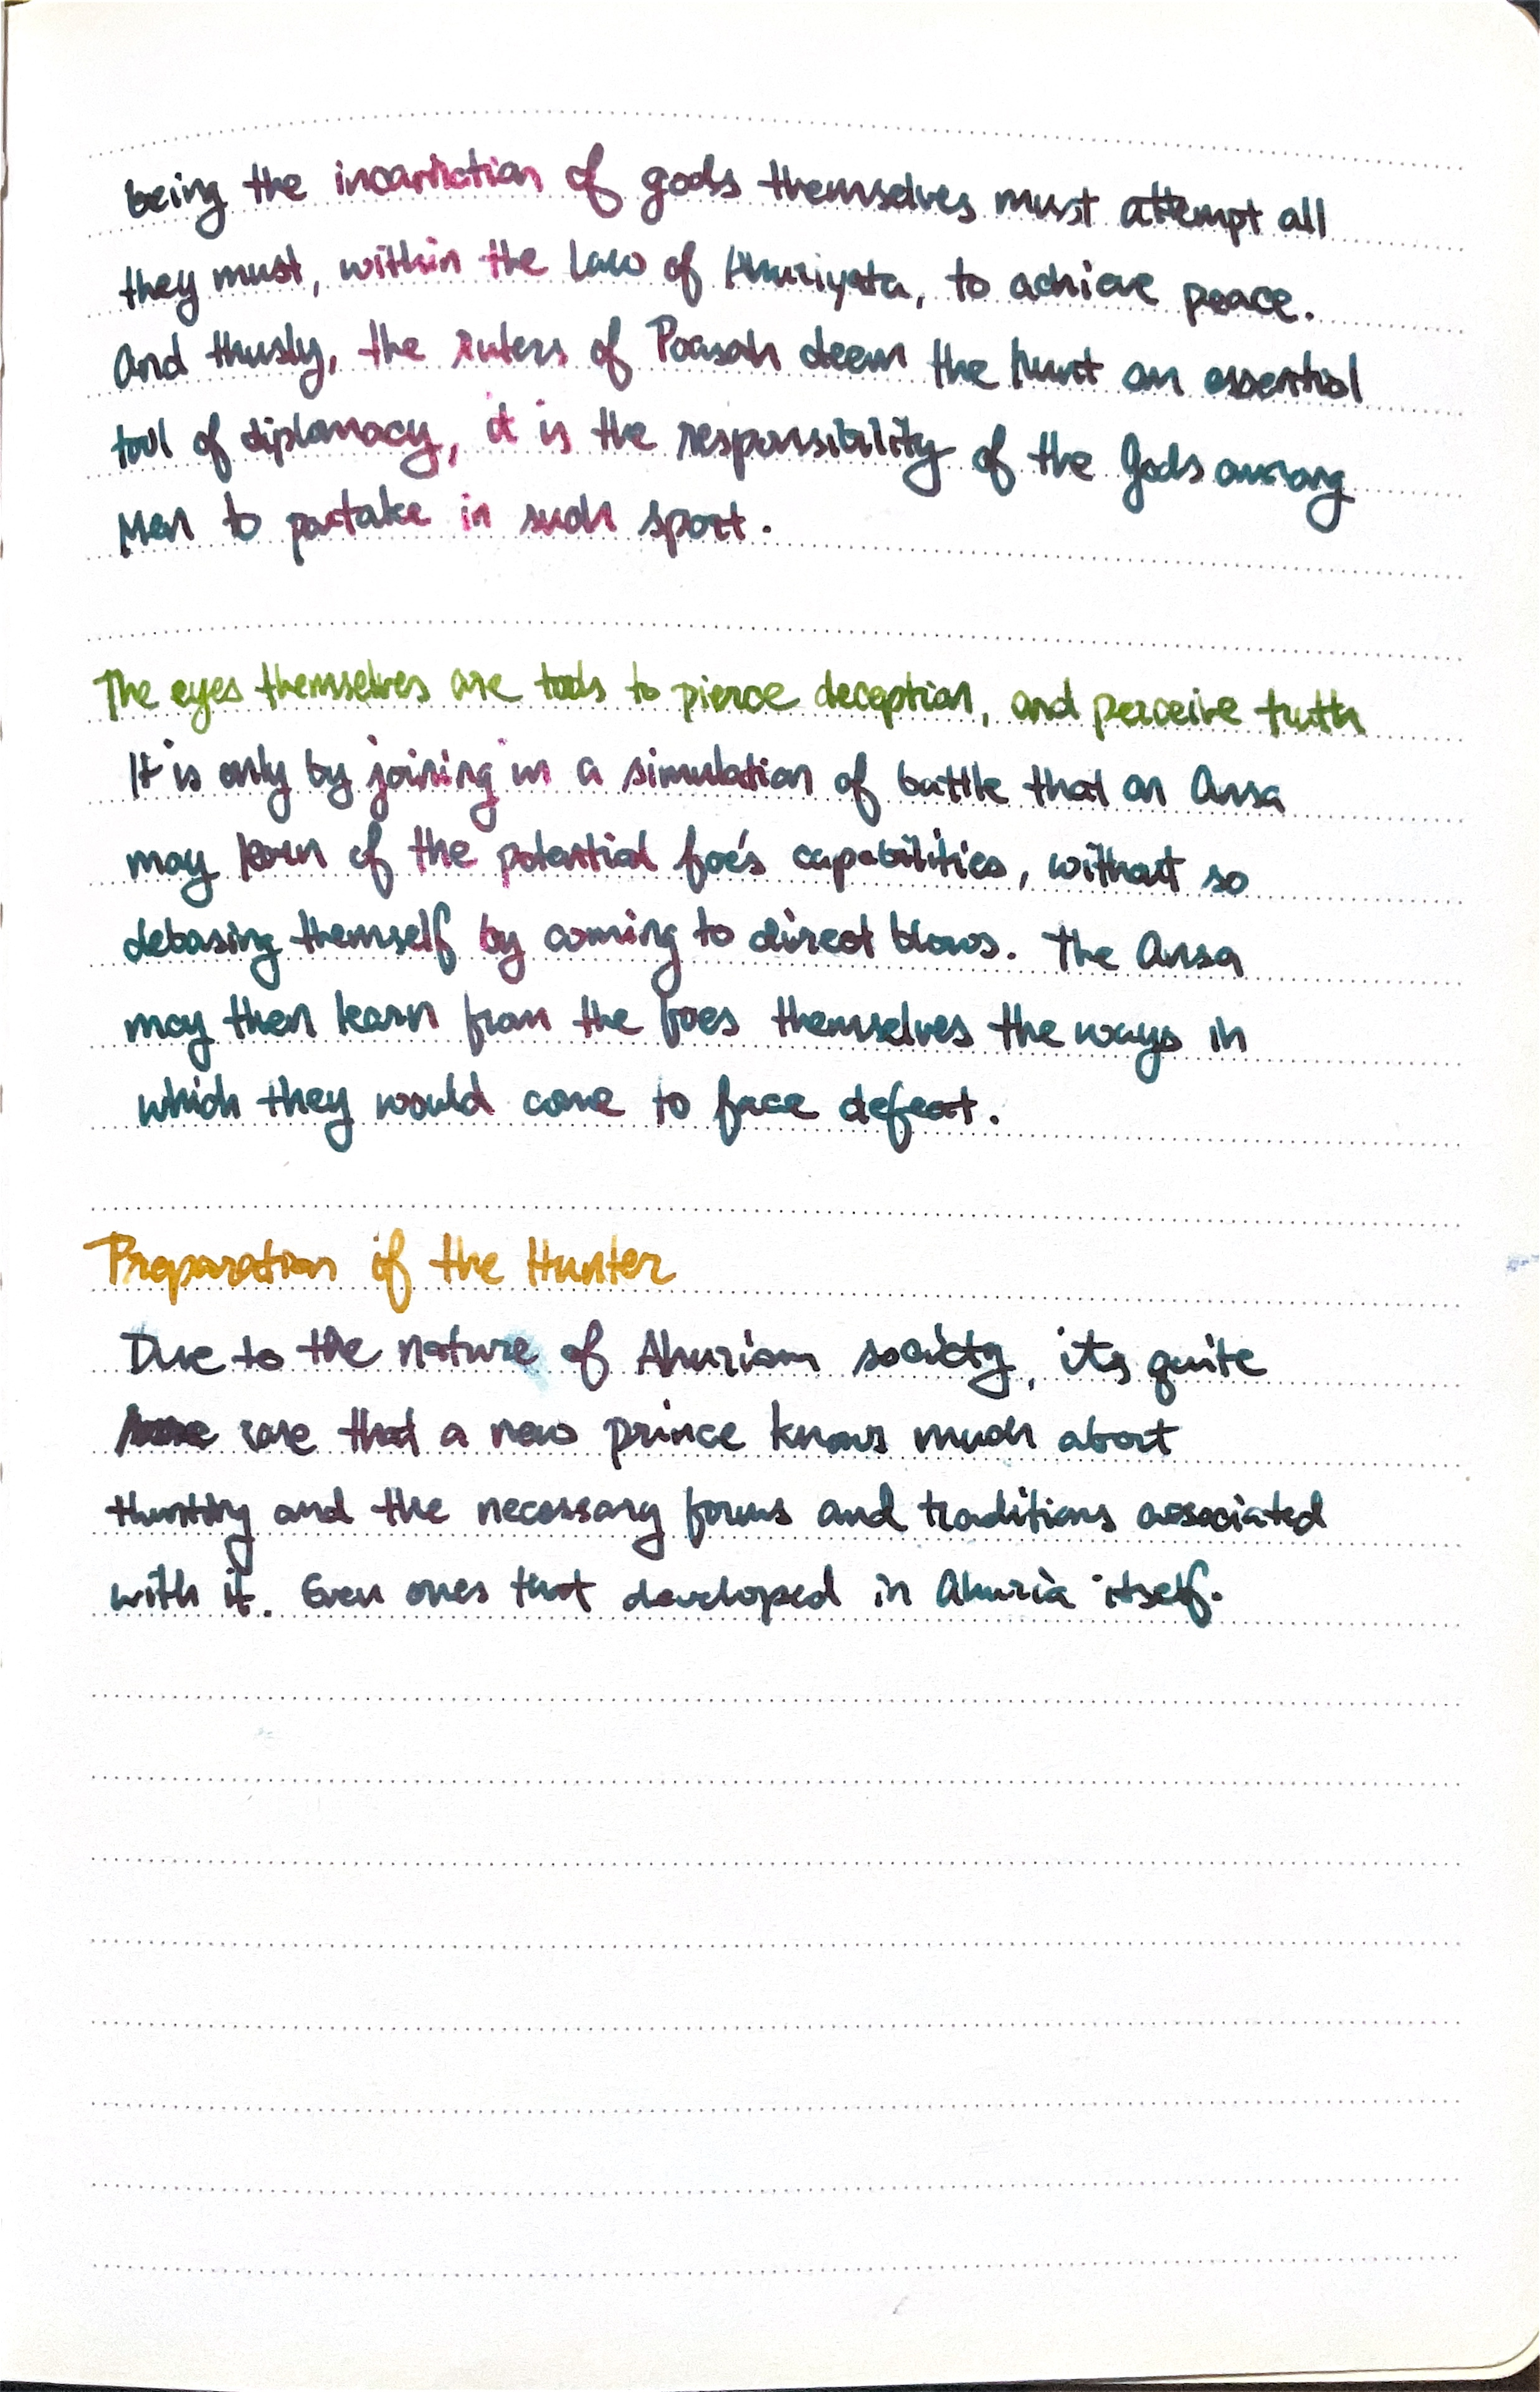 being the incarnation of gods themselves must attempt all
they must, within the law of Ahuriyata, to achieve peace.
And thusly, the rulers of Poasah deem the hunt an essential
tool of diplomacy, it is the responsibility of the Gods among
Men to partake in such sport.
The eyes themselves are tools to pierce deception, and perceive truth
It is only by joining in a simulation of battle that an Ansa
may learn of the potential foe's capabilities, without so
debasing themself by coming to direct blows. The Ansa
may then learn from the foes themselves the ways in
which they would come to face defeat.
Preparation of the Hunter
Due to the nature of Ahurian society, its quite
rare that a new prince knows much about
Hunting and the necessary forms and traditions associated
with it. Even ones that developed in Ahuria itself.